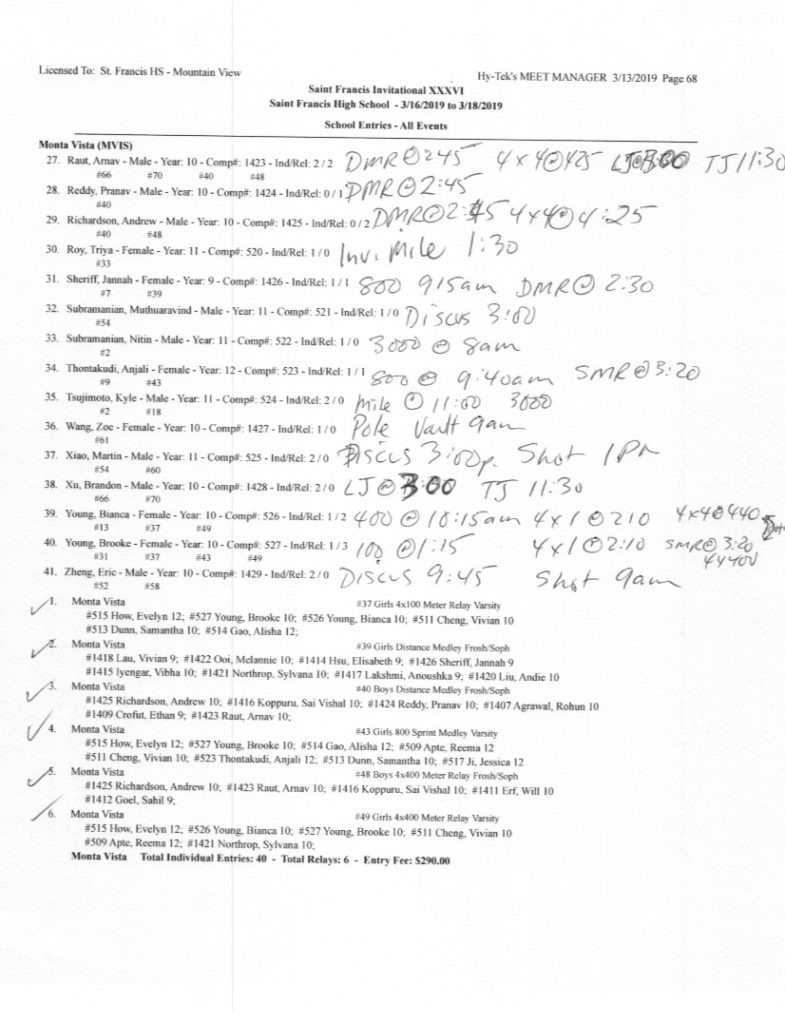 Licensed To: St. Francis HS - Mountain View
Hy-Tek's MEET MANAGER 3/13/2019 Page 68
Saint Francis Invitational XXXVI
Saint Francis High School - 3/16/2019 to 3/18/2019
School Entries - All Events
Monta Vista (MVIS)
27. Raut, Arnav - Male - Year: 10 - Comp#: 1423 - Ind/Rel: 2 / 2 DMR@245 4x4@425 LJ@3:00 TJ 11:30
#66 #70 #40 #48
28. Reddy, Pranav - Male - Year: 10 - Comp#: 1424 - Ind/Rel: 0 / 1 DMR@2:45
#40
29. Richardson, Andrew - Male - Year: 10 - Comp#: 1425 - Ind/Rel: 0 / 2 DMR@2:45 4x4@4:25
#40 #48
30. Roy, Triya - Female - Year: 11 - Comp#: 520 - Ind/Rel: 1 / 0 Inv. Mile 1:30
#33
31. Sheriff, Jannah - Female - Year: 9 - Comp#: 1426 - Ind/Rel: 1 / 1 800 915am DMR@ 2:30
#7 #39
32. Subramanian, Muthuaravind - Male - Year: 11 - Comp#: 521 - Ind/Rel: 1 / 0 Discus 3:00
#54
33. Subramanian, Nitin - Male - Year: 11 - Comp#: 522 - Ind/Rel: 1 / 0 3000 @ 8am
#2
34. Thontakudi, Anjali - Female - Year: 12 - Comp#: 523 - Ind/Rel: 1 / 1 800 @ 9:40am SMR@3:20
#9 #43
35. Tsujimoto, Kyle - Male - Year: 11 - Comp#: 524 - Ind/Rel: 2 / 0 Mile @ 11:00 3000
#2 #18
36. Wang, Zoe - Female - Year: 10 - Comp#: 1427 - Ind/Rel: 1 / 0 Pole Vault 9am
#61
37. Xiao, Martin - Male - Year: 11 - Comp#: 525 - Ind/Rel: 2 / 0 Discus 3:00p. Shot 1PM
#54 #60
38. Xu, Brandon - Male - Year: 10 - Comp#: 1428 - Ind/Rel: 2 / 0 LJ@3:00 TJ 11:30
#66 #70
39. Young, Bianca - Female - Year: 10 - Comp#: 526 - Ind/Rel: 1 / 2 400 @ 10:15am 4x1@210 4x4@440
#13 #37 #49
40. Young, Brooke - Female - Year: 10 - Comp#: 527 - Ind/Rel: 1 / 3 100 @1:15 4x1@2:10 SMR@ 3:20
#31 #37 #43 #49 4x400
41. Zheng, Eric - Male - Year: 10 - Comp#: 1429 - Ind/Rel: 2 / 0 Discus 9:45 Shot 9am
#52 #58
1. Monta Vista #37 Girls 4x100 Meter Relay Varsity
#515 How, Evelyn 12; #527 Young, Brooke 10; #526 Young, Bianca 10; #511 Cheng, Vivian 10
#513 Dunn, Samantha 10; #514 Gao, Alisha 12;
2. Monta Vista #39 Girls Distance Medley Frosh/Soph
#1418 Lau, Vivian 9; #1422 Ooi, Melannie 10; #1414 Hsu, Elisabeth 9; #1426 Sheriff, Jannah 9
#1415 Iyengar, Vibha 10; #1421 Northrop, Sylvana 10; #1417 Lakshmi, Anoushka 9; #1420 Liu, Andie 10
3. Monta Vista #40 Boys Distance Medley Frosh/Soph
#1425 Richardson, Andrew 10; #1416 Koppuru, Sai Vishal 10; #1424 Reddy, Pranav 10; #1407 Agrawal, Rohun 10
#1409 Crofut, Ethan 9; #1423 Raut, Arnav 10;
4. Monta Vista #43 Girls 800 Sprint Medley Varsity
#515 How, Evelyn 12; #527 Young, Brooke 10; #514 Gao, Alisha 12; #509 Apte, Reema 12
#511 Cheng, Vivian 10; #523 Thontakudi, Anjali 12; #513 Dunn, Samantha 10; #517 Ji, Jessica 12
5. Monta Vista #48 Boys 4x400 Meter Relay Frosh/Soph
#1425 Richardson, Andrew 10; #1423 Raut, Arnav 10; #1416 Koppuru, Sai Vishal 10; #1411 Erf, Will 10
#1412 Goel, Sahil 9;
6. Monta Vista #49 Girls 4x400 Meter Relay Varsity
#515 How, Evelyn 12; #526 Young, Bianca 10; #527 Young, Brooke 10; #511 Cheng, Vivian 10
#509 Apte, Reema 12; #1421 Northrop, Sylvana 10;
Monta Vista Total Individual Entries: 40 - Total Relays: 6 - Entry Fee: $290.00